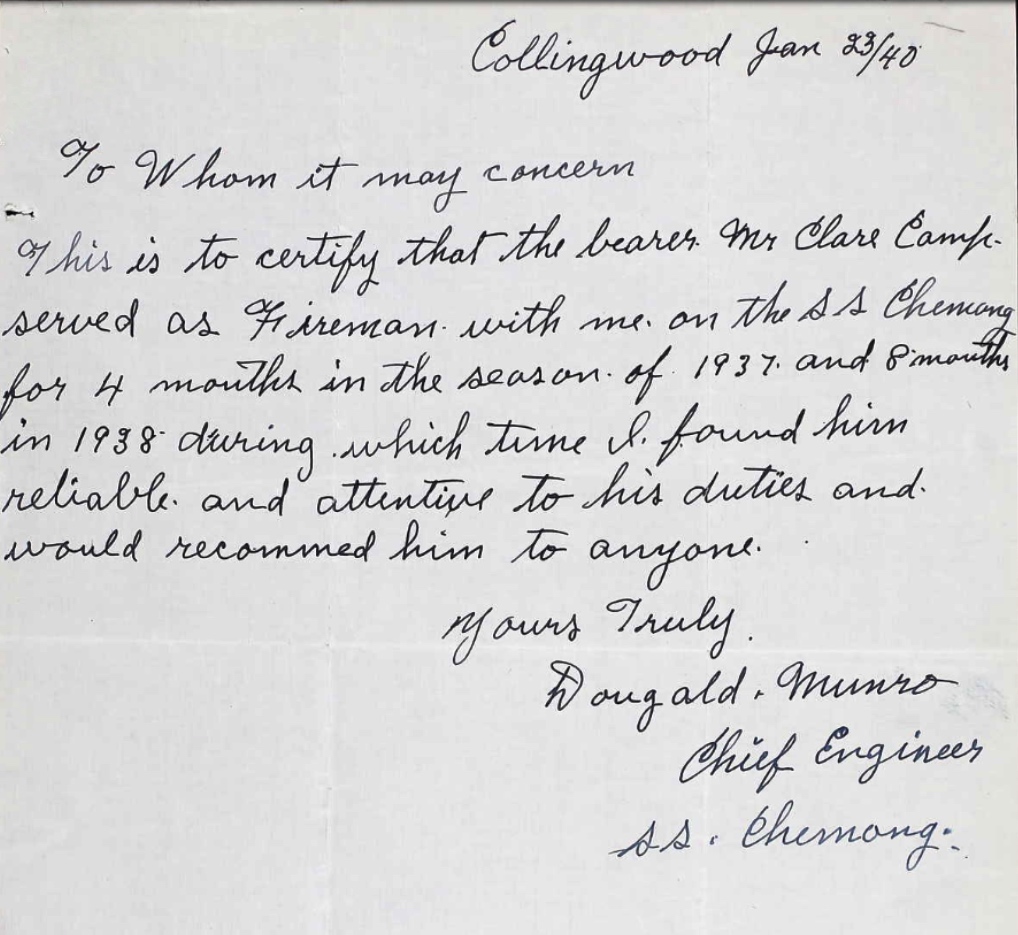 Collingwood Jan 23/40
To Whom it may concern
This is to certify that the bearer Mr Clare Camp.
served as Fireman with me on the SS Chemong
for 4 months in the season of 1937 and 8 months
in 1938 during which time I found him
reliable and attentive to his duties and
would recommed him to anyone.
Yours Truly.
Dougald. Munro
Chief Engineer
SS. Chemong.